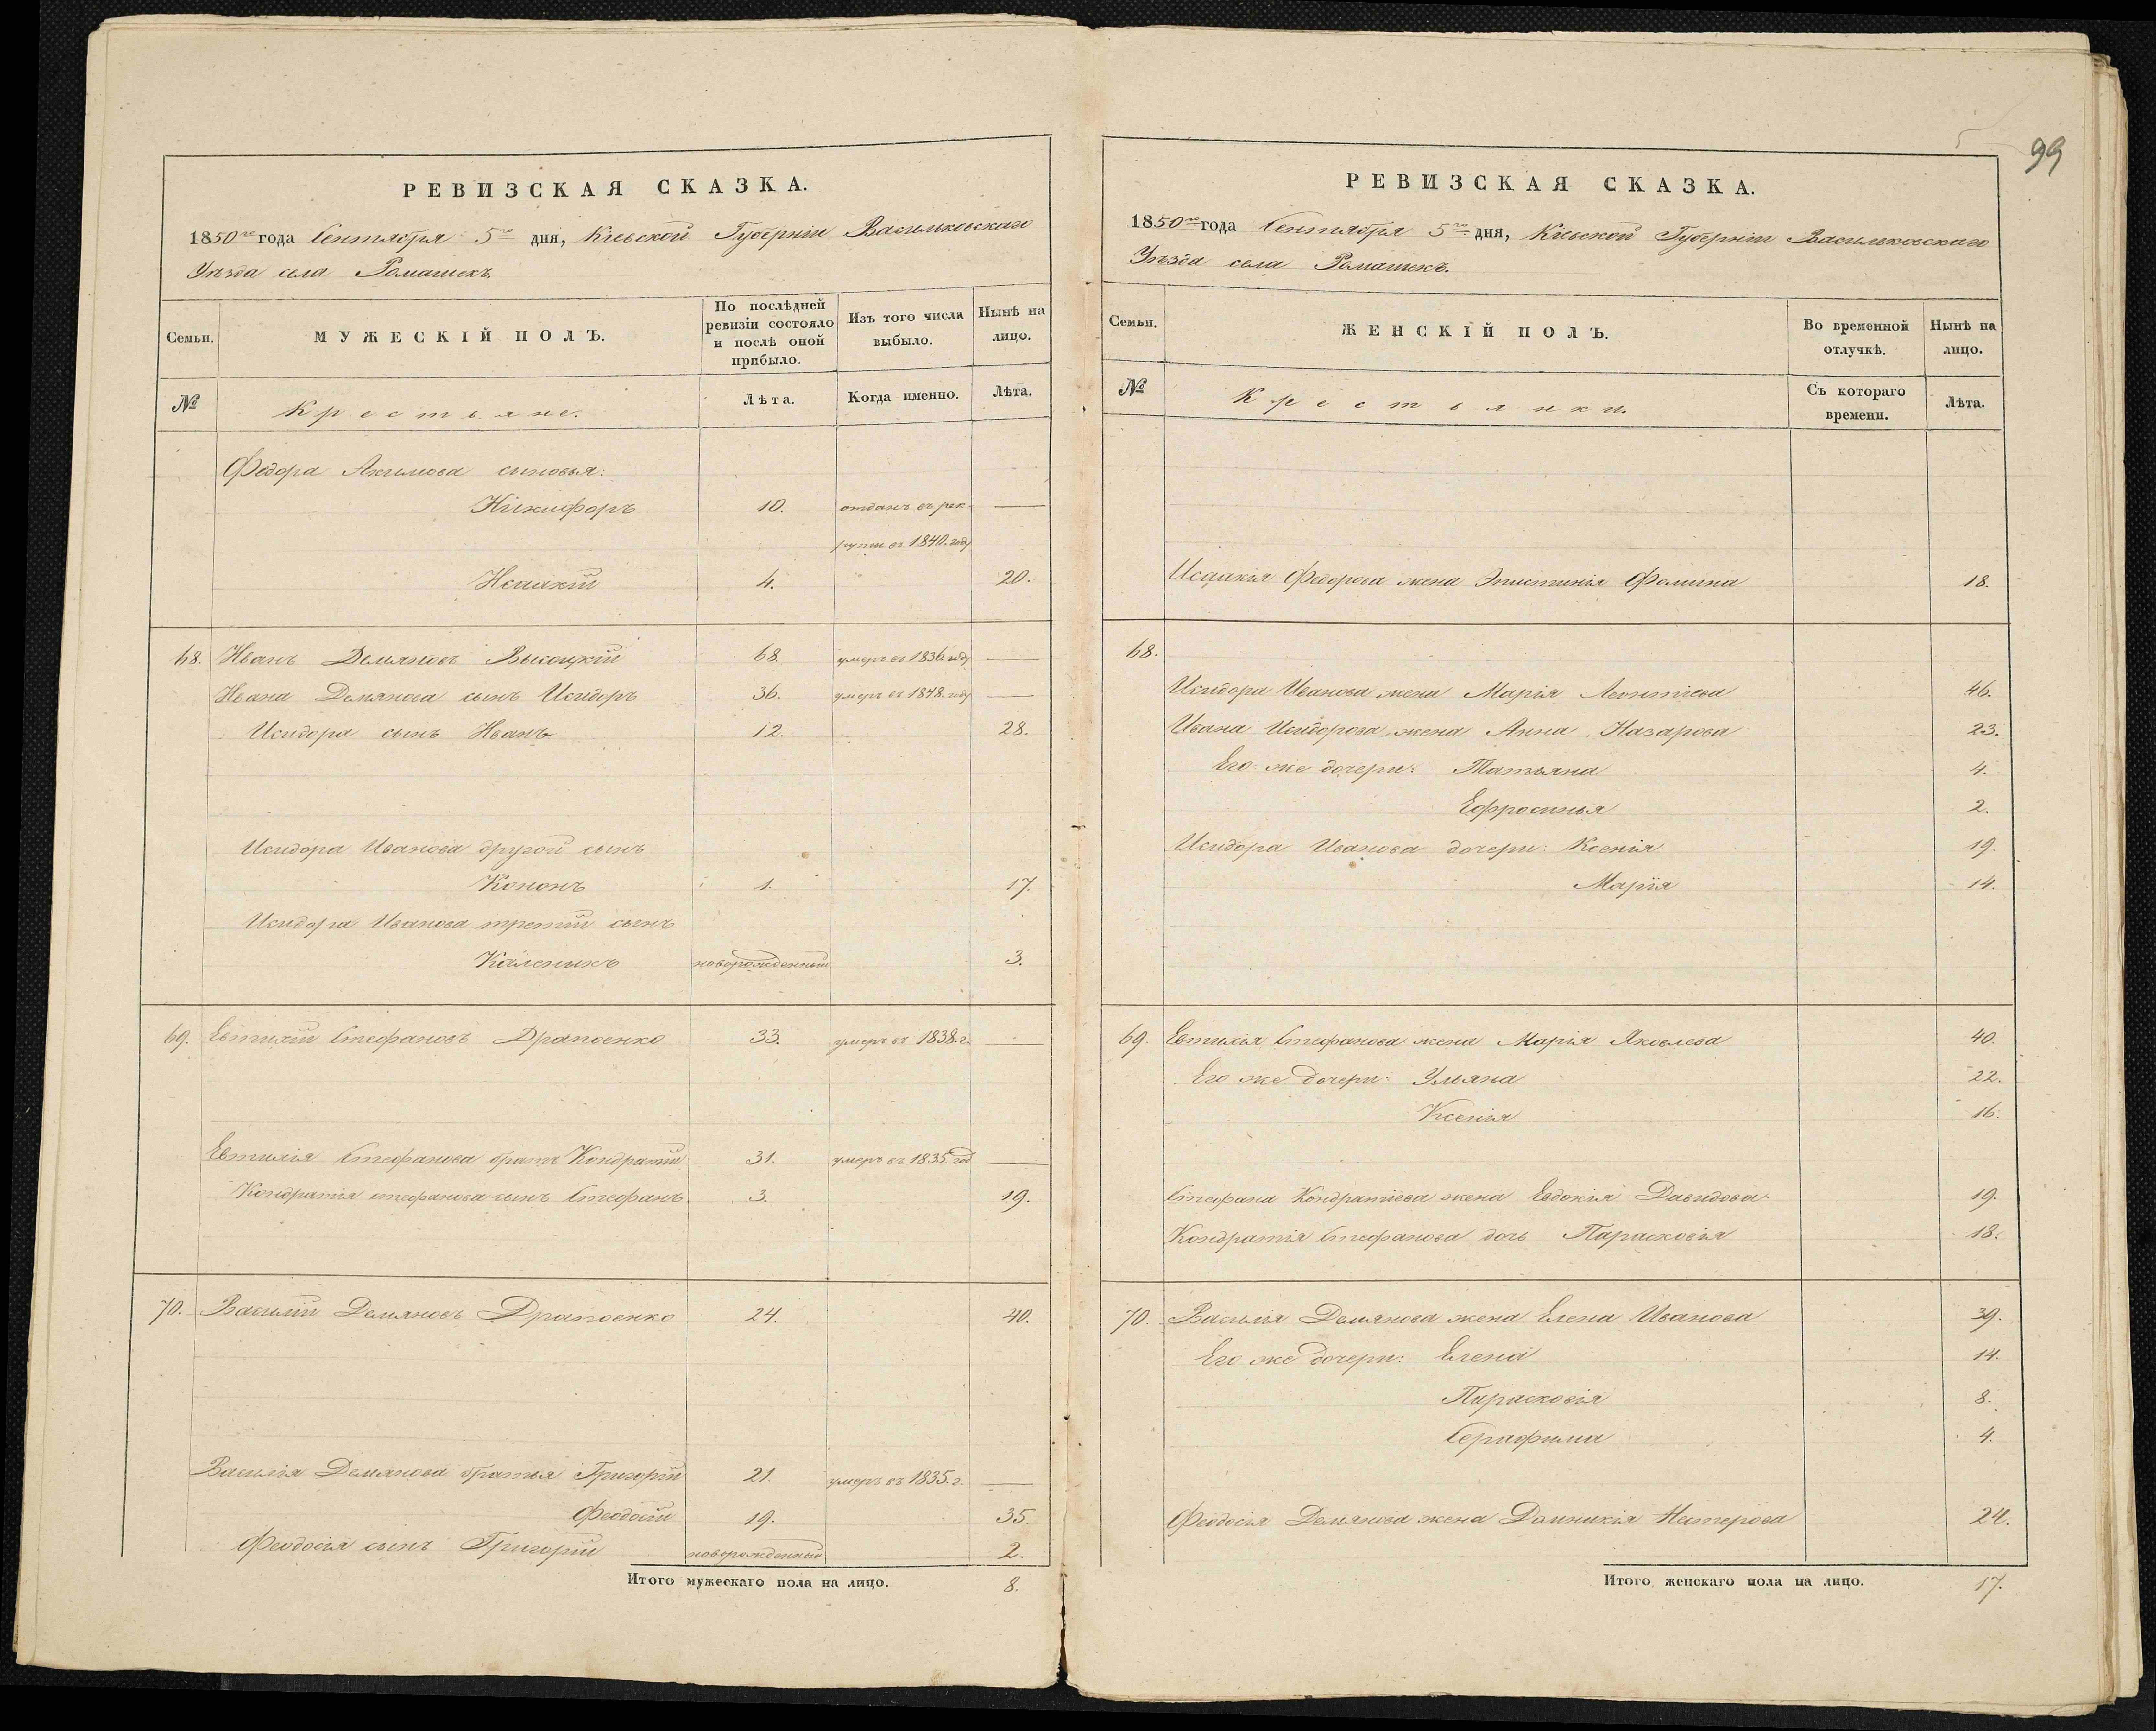 99
РЕВИЗСКАЯ СКАЗКА.
1850го года Сентября 5го дня, Кіевской Губерніи Васильковскаго
Уѣзда села Ромашекъ
Семьи.
МУЖЕСКІЙ ПОЛЪ.
По послѣдней ревизіи состояло и послѣ оной прибыло.
Изъ того числа выбыло.
Нынѣ на лицо.
№
Крестьяне.
Лѣта.
Когда именно.
Лѣта.
Федора Акимова сыновья:
Никифоръ 10. отданъ въ рек- —
руты въ 1840. году
Исаакій 4. 20.
68. Иванъ Демяновъ Высоцкій 68. умеръ въ 1836. году —
Ивана Демянова сынъ Исидоръ 36. умеръ въ 1848. году —
Исидора сынъ Иванъ 12. 28.
Исидора Иванова другой сынъ
Кононъ 1. 17.
Исидора Иванова третій сынъ
Каленикъ новорожденный 3.
69. Евтихій Стефановъ Драпоенко 33. умеръ въ 1838. г. —
Евтихія Стефанова братъ Кондратій 31. умеръ въ 1835. год —
Кондратія стефанова сынъ Стефанъ 3. 19.
70. Василій Демяновъ Драпоенко 24. 40.
Василія Демянова братья Григорій 21. умеръ въ 1835. г. —
Феодосій 19. 35.
Феодосія сынъ Григорій новорожденный 2.
Итого мужескаго пола на лицо. 8.
РЕВИЗСКАЯ СКАЗКА.
1850го года Сентября 5го дня, Кіевской Губерніи Васильковскаго
Уѣзда села Ромашекъ.
Семьи.
ЖЕНСКІЙ ПОЛЪ.
Во временной отлучкѣ.
Нынѣ на лицо.
№
Крестьянки.
Съ котораго времени.
Лѣта.
Исаакія Федорова жена Эпистинія Фомина 18.
68.
Исидора Иванова жена Марія Леонтіева 46.
Ивана Исидорова жена Анна Назарова 23.
Его же дочери: Татьяна 4.
Ефросинья 2.
Исидора Иванова дочери: Ксенія 19.
Марія 14.
69. Евтихія Стефанова жена Марія Яковлева 40.
Его же дочери: Ульяна 22.
Ксенія 16.
Стефана Кондратіева жена Евдокія Давидова 19.
Кондратія Стефанова дочь Парасковія 18.
70. Василія Демянова жена Елена Иванова 39.
Его же дочери: Елена 14.
Парасковія 8.
Серафима 4.
Феодосія Демянова жена Домникія Нестерова 24.
Итого женскаго пола на лицо. 17.